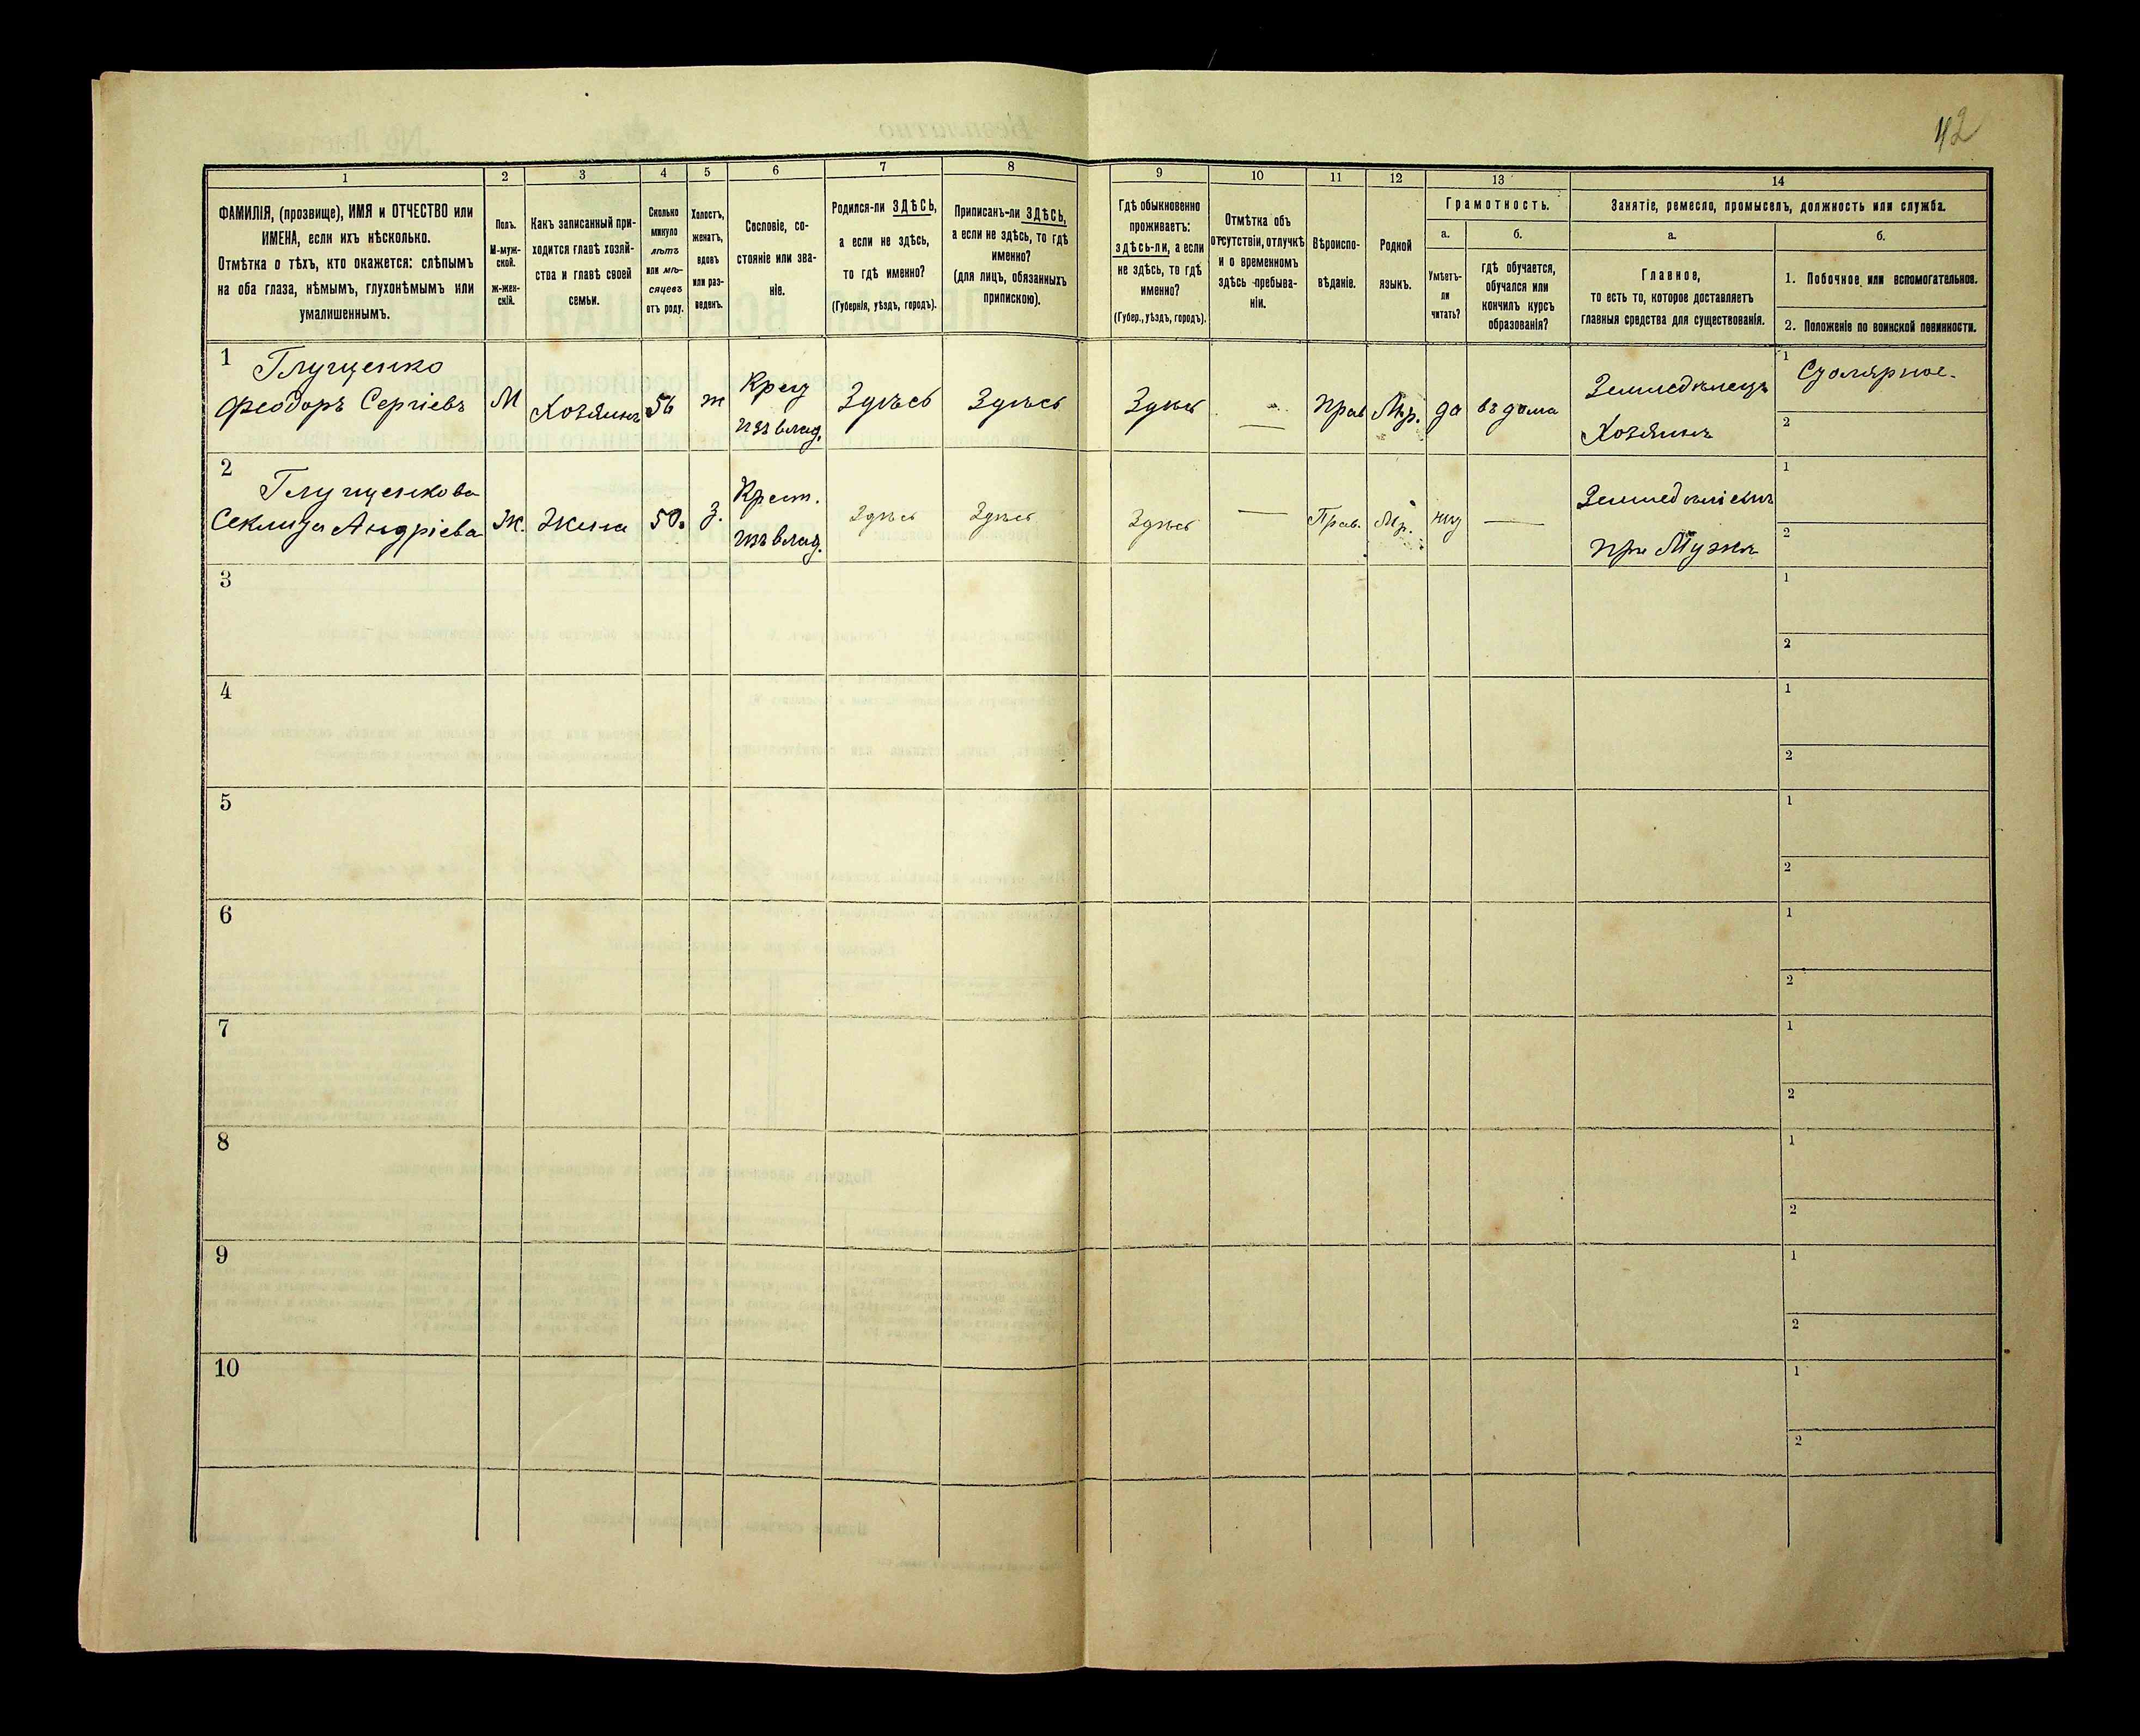 42
1 2 3 4 5 6 7 8 9 10 11 12 13 14
ФАМИЛІЯ, (прозвище), ИМЯ и ОТЧЕСТВО или
ИМЕНА, если ихъ нѣсколько.
Отмѣтка о тѣхъ, кто окажется: слѣпымъ
на оба глаза, нѣмымъ, глухонѣмымъ или
умалишеннымъ.
Полъ.
М-муж-
ской.
Ж-жен-
скій.
Какъ записанный при-
ходится главѣ хозяй-
ства и главѣ своей
семьи.
Сколько
минуло
лѣтъ
или мѣ-
сяцевъ
отъ роду.
Холостъ,
женатъ,
вдовъ
или раз-
веденъ.
Сословіе, со-
стояніе или зва-
ніе.
Родился-ли ЗДѢСЬ,
а если не здѣсь,
то гдѣ именно?
(Губернія, уѣздъ, городъ).
Приписанъ-ли ЗДѢСЬ,
а если не здѣсь, то гдѣ
именно?
(для лицъ, обязанныхъ
припискою).
Гдѣ обыкновенно
проживаетъ:
здѣсь-ли, а если
не здѣсь, то гдѣ
именно?
(Губер., уѣздъ, городъ).
Отмѣтка объ
отсутствіи, отлучкѣ
и о временномъ
здѣсь пребыва-
ніи.
Вѣроиспо-
вѣданіе.
Родной
языкъ.
Грамотность.
а.
Умѣетъ-
ли
читать?
б.
гдѣ обучается,
обучался или
кончилъ курсъ
образованія?
Занятіе, ремесло, промыселъ, должность или служба.
а.
Главное,
то есть то, которое доставляетъ
главныя средства для существованія.
б.
1. Побочное или вспомогательное.
2. Положеніе по воинской повинности.
1 Глущенко
Феодоръ Сергіевъ
М
Хозяинъ
56
ж
Крест
изъ влад.
Здѣсь
Здѣсь
Здѣсь
—
Прав
Мр.
да
въ дома
Земледѣлецъ
Хозяинъ
1 Столярное.
2
2 Глущенкова
Секлита Андріева
Ж.
Жена
50.
З.
Крест.
изъ влад.
Здѣсь
Здѣсь
Здѣсь
—
Прав.
Мр.
нѣт
—
при Мужѣ
1
2
3
1
2
4
1
2
5
1
2
6
1
2
7
1
2
8
1
2
9
1
2
10
1
2